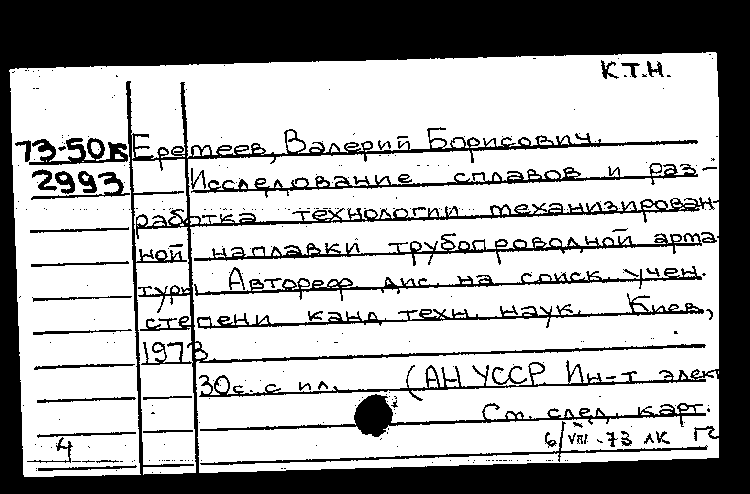 К.Т.Н.
73-50к Еремеев, Валерий Борисович.
2993 Исследование сплавов и раз-
работка технологии механизирован-
ной наплавки трубопроводной арма-
туры Автореф. дис. на соиск. учен.
степени канд. техн. наук. Киев,
1973.
30с. с ил. (АН УССР Ин-т элект
См. след. карт.
4 6/VIII-73 лк